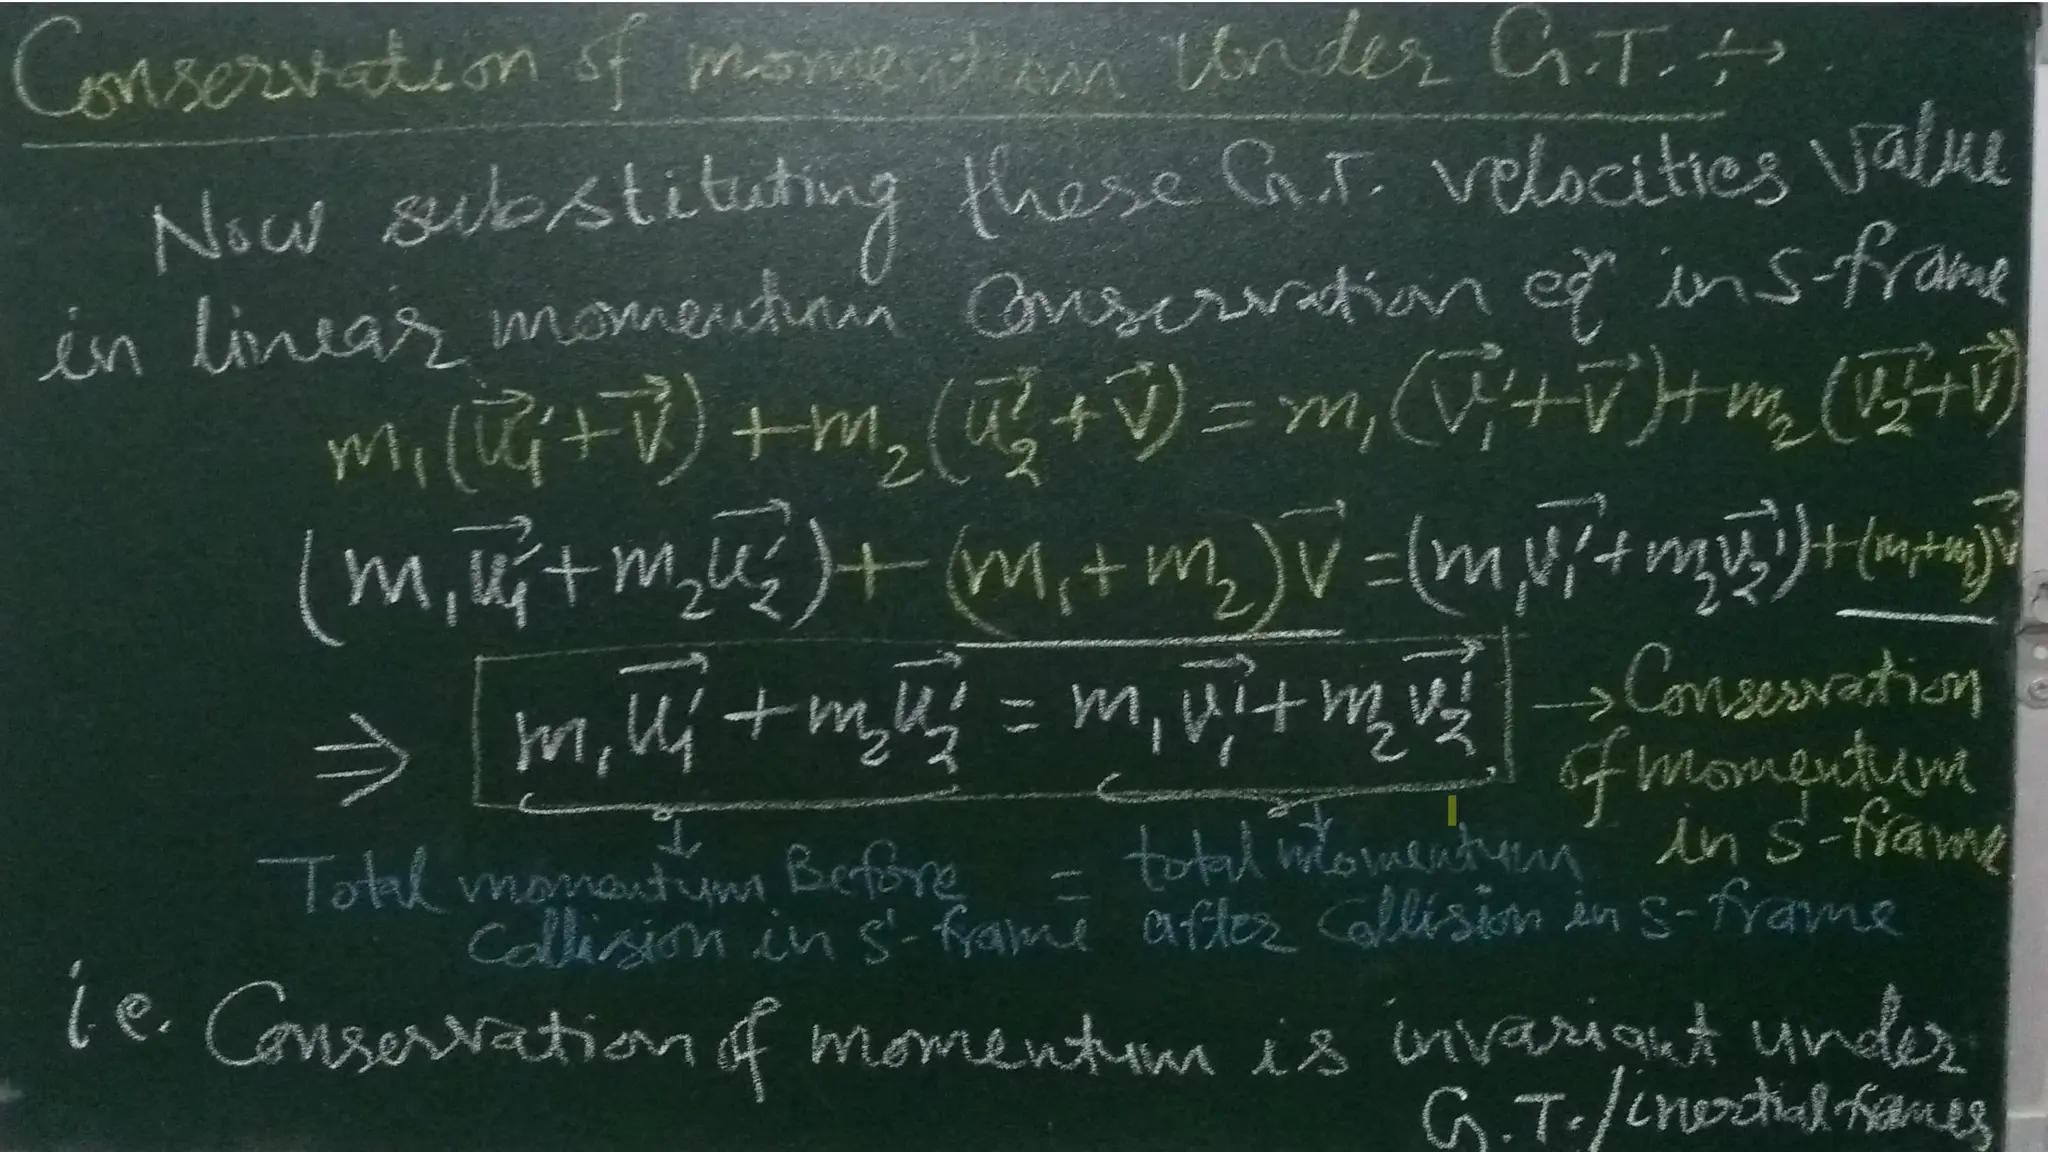 Conservation of momentum Under G.T. :→
Now substituting these G.T. velocities value
in linear momentum Conservation eqⁿ in S-frame
m₁(u⃗₁' + V⃗) + m₂(u⃗₂' + V⃗) = m₁(v⃗₁' + V⃗) + m₂(v⃗₂' + V⃗)
(m₁u⃗₁' + m₂u⃗₂') + (m₁ + m₂)V⃗ = (m₁v⃗₁' + m₂v⃗₂') + (m₁+m₂)V⃗
⇒ m₁u⃗₁' + m₂u⃗₂' = m₁v⃗₁' + m₂v⃗₂' → Conservation
of momentum
in S'-frame
Total momentum Before = total momentum
collision in S'-frame after collision in S-frame
i.e. Conservation of momentum is invariant under
G.T./inertial frames